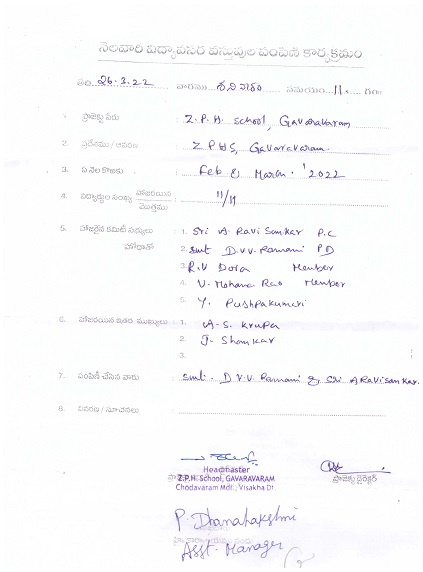 నెలవారి విద్యావసర వస్తువుల పంపిణి కార్యక్రమం
తేది 26.3.22 వారము శనివారం సమయం 11. గం॥
1. ప్రాజెక్టు పేరు : Z.P.H. School, Gavaravaram
2. ప్రదేశము / ఊరు : ZPHS, Gavaravaram.
3. ఏ నెల కొఱకు : Feb & March '2022
4. విద్యార్థుల సంఖ్య హాజరయిన / మొత్తము : 11/11
5. హాజరైన కమిటీ సభ్యులు : 1. Sri A. Ravi Sankar P.C
హోదాతో 2. Smt D.V.V. Ramani PD
3. R.V Dora Member
4. V. Mohana Rao Member
5. Y. Pushpakumari
6. హాజరయిన ఇతర ముఖ్యులు : 1. A.S. Krupa
2. J. Shankar
3.
7. పంపిణీ చేసిన వారు : Smt. D.V.V. Ramani & Sri A Ravi Sankar.
8. వివరణ / సూచనలు :
Headmaster
Z.P.H. School, GAVARAVARAM
Chodavaram Mdl., Visakha Dt.
ప్రాజెక్టు డైరెక్టర్
P. Dhanalakshmi
Asst. Manager